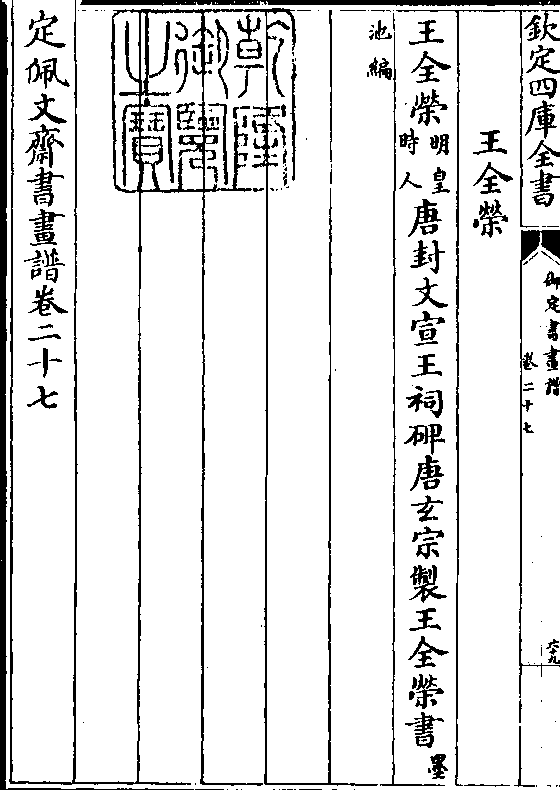 欽定四庫全書
御定書畫譜
卷二十七
六十九
王全榮
王全榮明皇時人唐封文宣王祠碑唐玄宗製王全榮書墨
池編
乾隆御覽之寶
定佩文齋書畫譜卷二十七